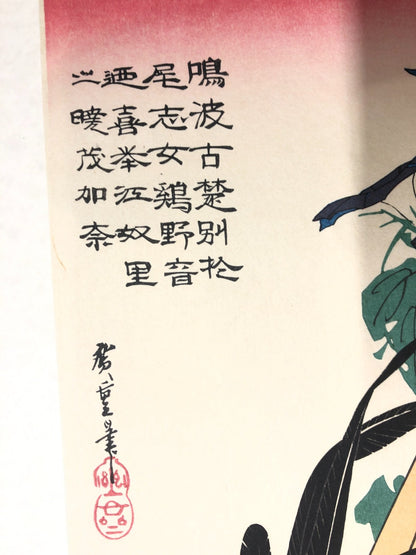 鳴波古楚別扵
尾志女鶏野音
迺喜举江奴里
之暁茂加奈
廣重筆